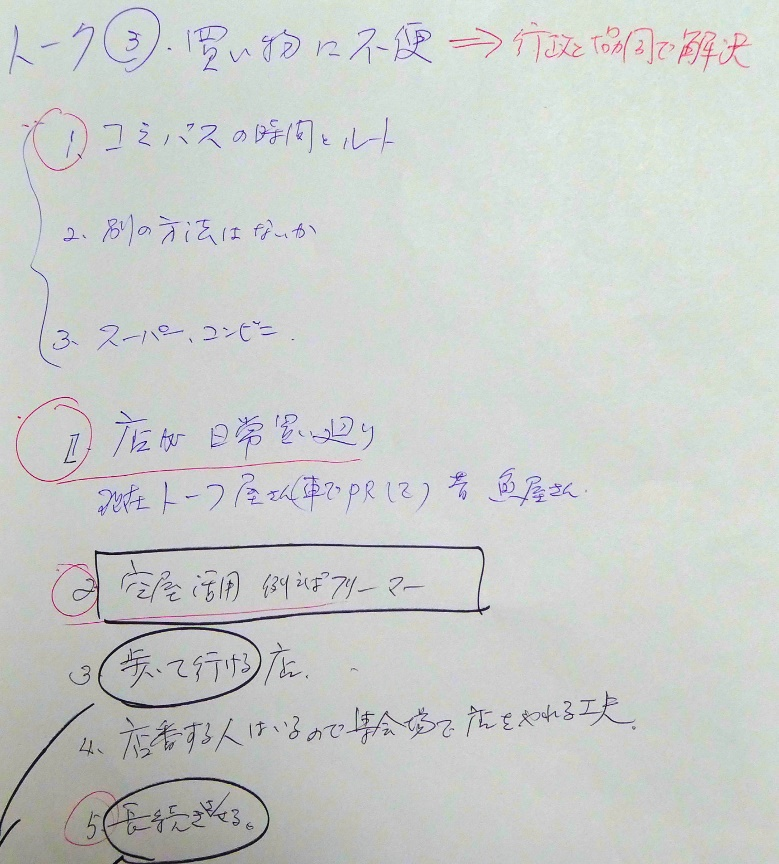 トーク③.買い物に不便 ⇒ 行政と協同で解決
1、コミバスの時間とルート
2、別の方法はないか
3、スーパー、コンビニ.
1. 店が 日常買い廻り
現在トーフ屋さん(車でPRして) 昔 魚屋さん.
2 空屋活用 例えばフリーマー
3 歩いて行ける店.
4、店番する人はいるので集会場で店をやれる工夫。
5、長続きさせる。